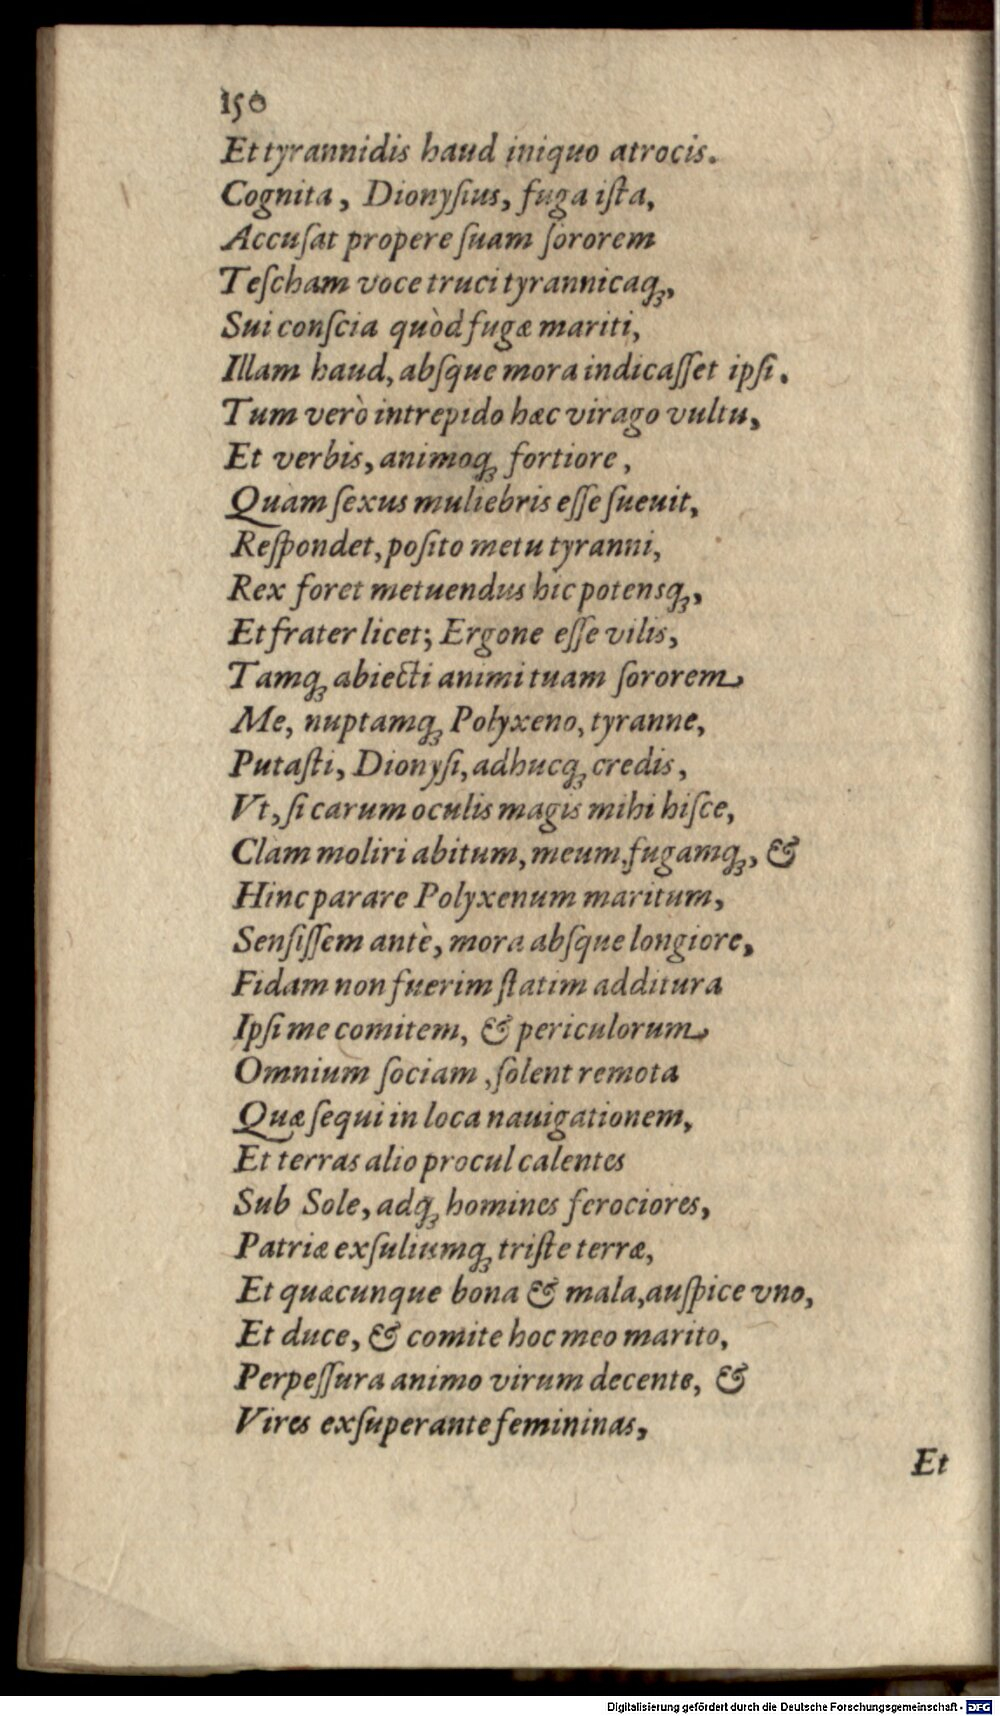 150
Et tyrannidis haud iniquo atrocis.
Cognita, Dionyſius, fuga iſta,
Accuſat propere ſuam ſororem
Teſcham voce truci tyrannicaq́ꝫ,
Sui conſcia quòd fugæ mariti,
Illam haud, abſque mora indicaſſet ipſi.
Tum verò intrepido hæc virago vultu,
Et verbis, animoq́ꝫ fortiore,
Quàm ſexus muliebris eſſe ſueuit,
Reſpondet, poſito metu tyranni,
Rex foret metuendus hic potensq́ꝫ,
Et frater licet; Ergone eſſe vilis,
Tamq́ꝫ abiecti animi tuam ſororem
Me, nuptamq́ꝫ Polyxeno, tyranne,
Putaſti, Dionyſi, adhucq́ꝫ credis,
Vt, ſi carum oculis magis mihi hiſce,
Clàm moliri abitum, meum, fugamq́ꝫ, &
Hinc parare Polyxenum maritum,
Senſiſſem antè, mora abſque longiore,
Fidam non fuerim ſtatim additura
Ipſi me comitem, & periculorum
Omnium ſociam, ſolent remota
Quæ ſequi in loca nauigationem,
Et terras alio procul calentes
Sub Sole, adq́ꝫ homines ferociores,
Patriæ exſuliumq́ꝫ triſte terræ,
Et quæcunque bona & mala, auſpice vno,
Et duce, & comite hoc meo marito,
Perpeſſura animo virum decente, &
Vires exſuperante femininas,
Et
Digitalisierung gefördert durch die Deutsche Forschungsgemeinschaft - DFG